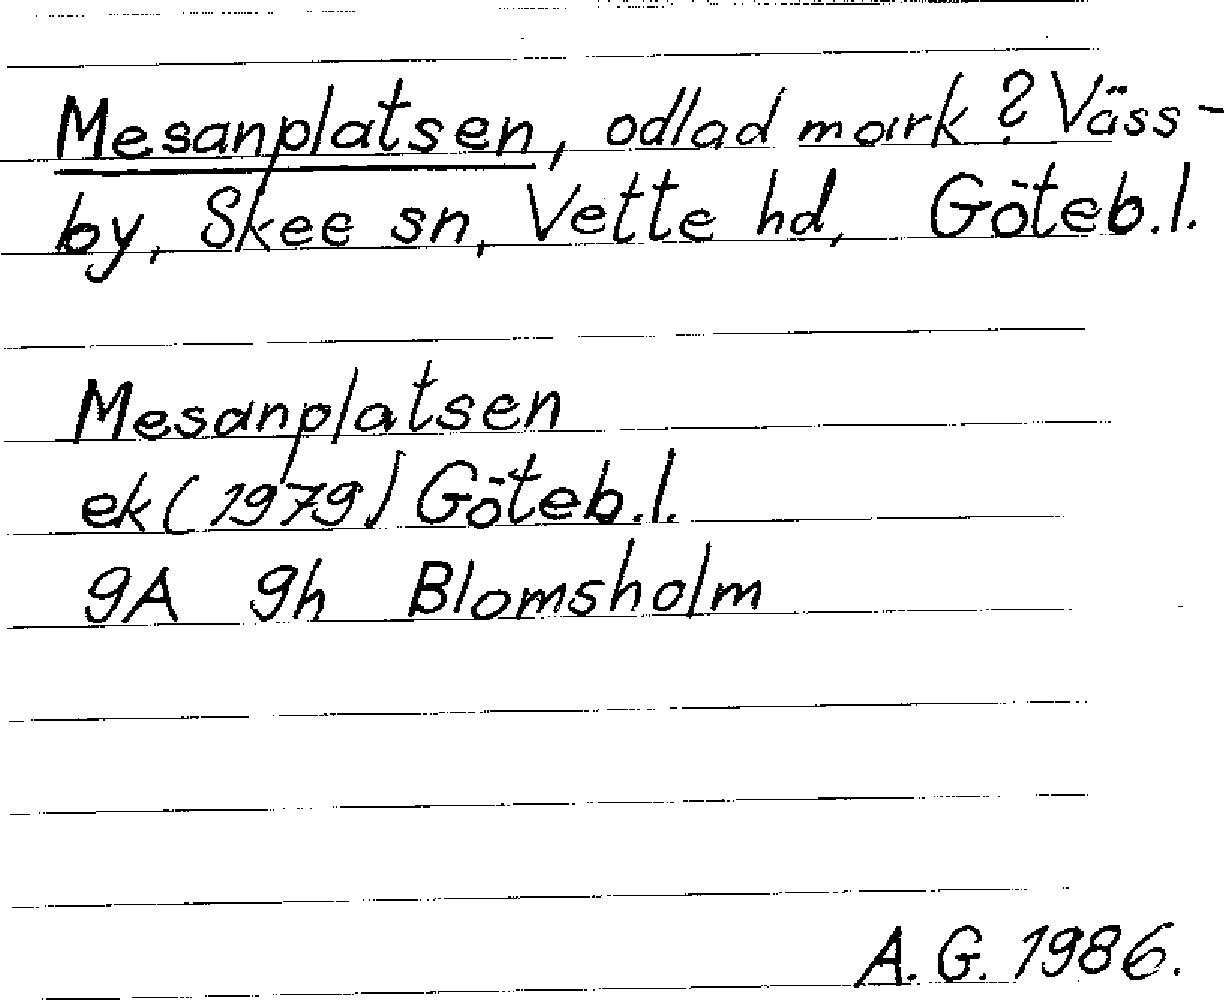 Mesanplatsen, odlad mark? Väss-
by, Skee sn, Vette hd, Göteb.l.
Mesanplatsen
ek (1979) Göteb.l.
9A 9h Blomsholm
A.G. 1986.